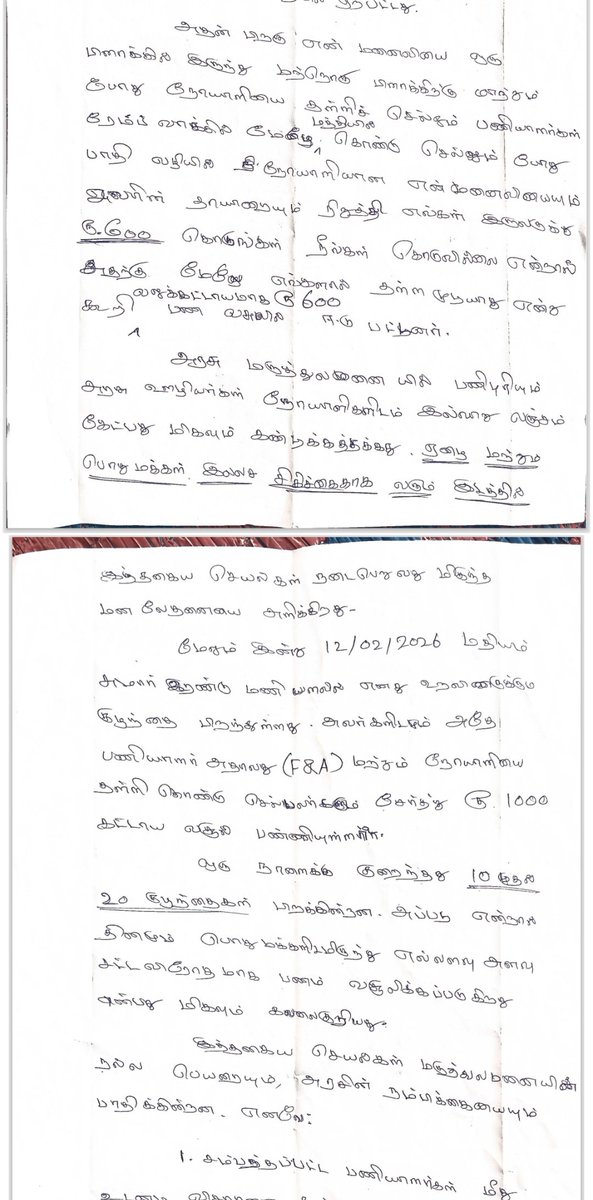 அதன் பிறகு என் மனைவியை ஒரு
பிளாக்கில் இருந்து மற்றொரு பிளாக்கிற்கு மாற்றும்
போது நோயாளியை தள்ளிச் செல்லும் பணியாளர்கள்
மத்தியில்
ரேம்ப் வாக்கில் மேலே கொண்டு செல்லும் போது
பாதி வழியில் நோயாளியான என் மனைவியையும்
அவரின் தாயாரையும் நிறுத்தி எங்கள் இருவருக்கு
ரூ.600 கொடுங்கள் நீங்கள் கொடுவில்லை என்றால்
அதற்கு மேலே எங்களால் தள்ள முடியாது என்று
வலுக்கட்டாயமாக ரூ 600
கூறி பண வசூலில் ஈடு பட்டனர்.
அரசு மருத்துவமனை யில் பணிபுரியும்
அரசு ஊழியர்கள் நோயாளிகளிடம் இவ்வாறு லஞ்சம்
கேட்பது மிகவும் கண்டிக்கத்தக்கது. ஏழை மற்றும்
பொது மக்கள் இலவச சிகிச்சைகாக வரும் இடத்தில்
இத்தகைய செயல்கள் நடைபெறுவது மிகுந்த
மன வேதனையை அளிக்கிறது-
மேலும் இன்று 12/02/2026 மதியம்
சுமார் இரண்டு மணியளவில் எனது உறவினருக்கும்
குழந்தை பிறந்துள்ளது. அவர்களிடமும் அதே
பணியாளர் அதாவது (F&A) மற்றும் நோயாளியை
தள்ளி கொண்டு செல்பவர்களும் சேர்ந்து ரூ. 1000
கட்டாய வசூல் பண்ணியுள்ளார்.
ஒரு நாளைக்கு குறைந்தது 10 முதல்
20 குழந்தைகள் பிறக்கின்றன. அப்படி என்றால்
தினமும் பொது மக்களிடமிருந்து எவ்வளவு அளவு
சட்ட விரோதமாக பணம் வசூலிக்கப்படுகிறது
என்பது மிகவும் கவலைகுரியது.
இத்தகைய செயல்கள் மருத்துவமனையின்
நல்ல பெயரையும், அரசின் நம்பிக்கையையும்
பாதிக்கின்றன. எனவே:
1. சம்பந்தப்பட்ட பணியாளர்கள் மீது